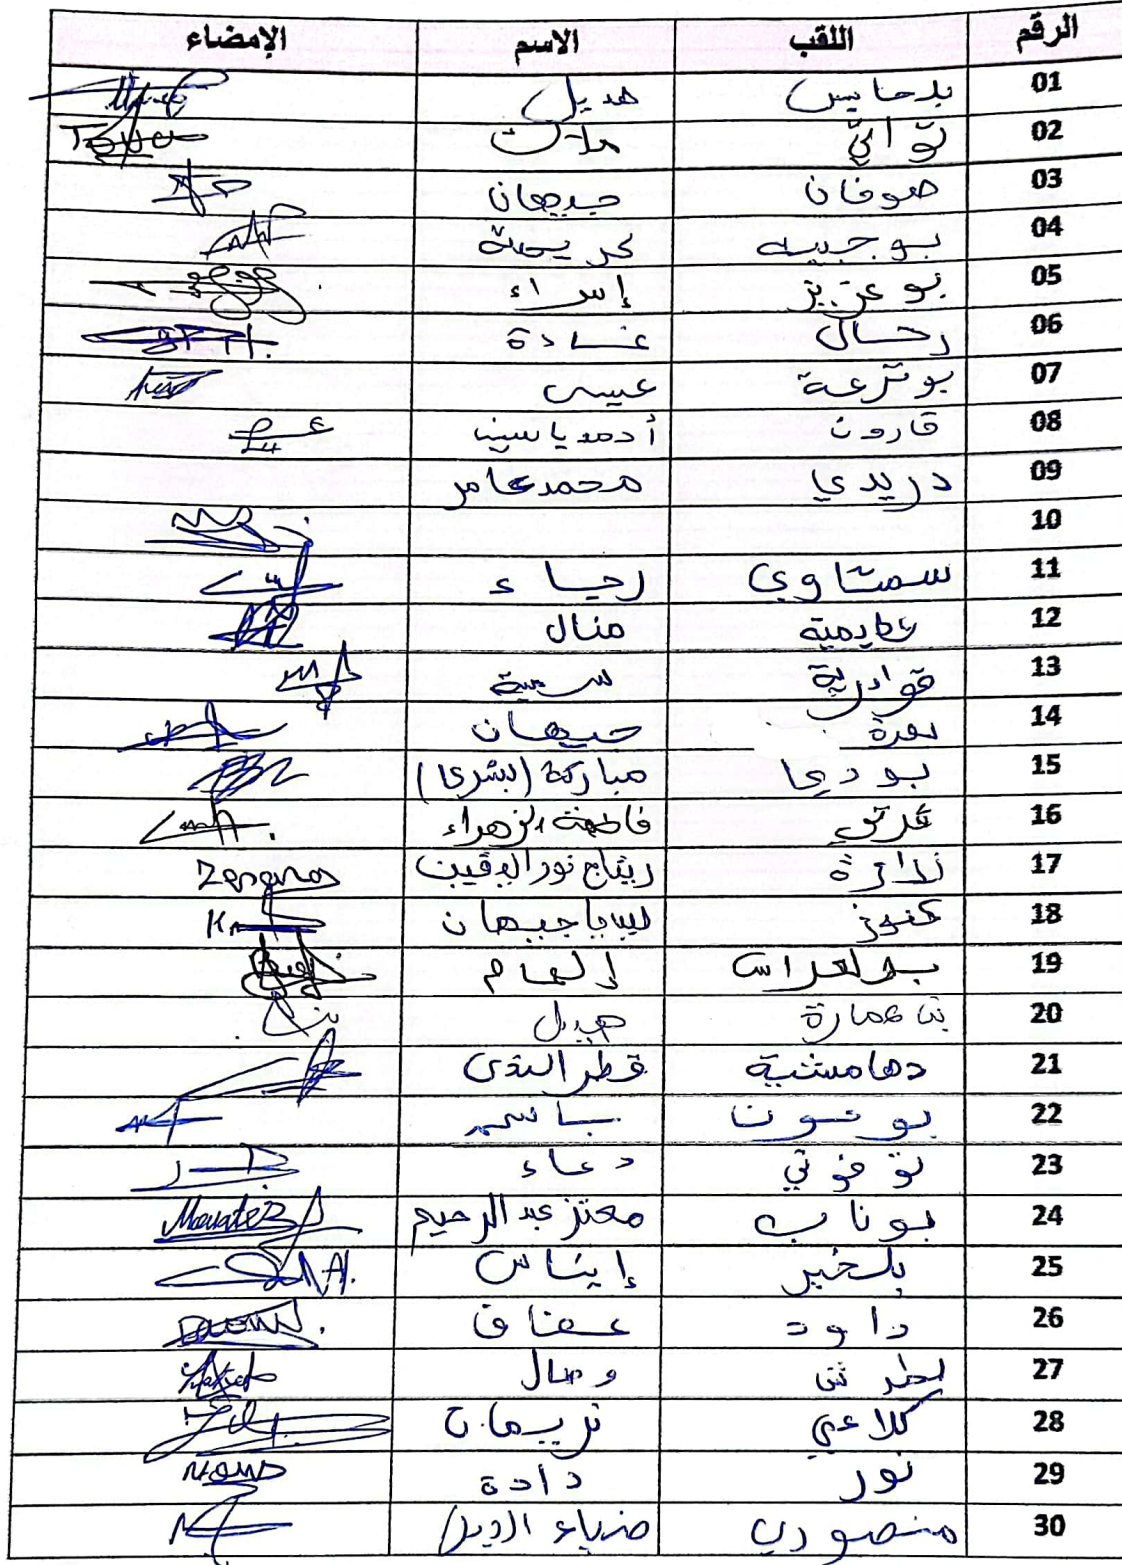 الرقم اللقب الاسم الإمضاء
01 بلحايس هديل
02 ملاك
03 صوفان جيهان
04 بوجبيه كريمة
05 بوعزيز إسراء
06 رحال غادة
07 بوترعة عيسى
08 قارون أحمد ياسين
09 دريدي محمد عامر
10
11 سمتاوي رجاء
12 خاديمية منال
13 قوادرية سمية
14 جيهان
15 بوديحا مباركة (بشرى)
16 فاطمة الزهراء
17 زغارة ريتاج نور اليقين Zegara
18 كنوز ليليا جيهان
19 بولعراس إلهام
20 بن عمارة هديل
21 دهامشية قطر الندى
22 باسم
23 دعاء
24 بوناب معتز عبد الرحيم Mouatez
25 بلخير إيناس
26 داود عفاف
27 لطرش وصال
28 كلاعي نريمان
29 نور دادة
30 منصوري ضياء الدين